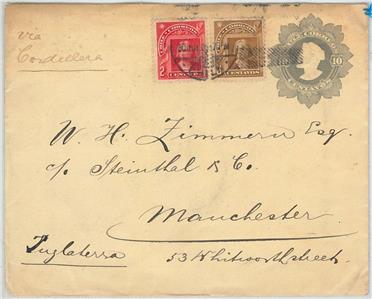 via
Cordillera
CHILE CORREOS
2 2
CENTAVOS
CENTAVOS
10
CENTAVOS
W. H. Zimmern Esq.
c/o Steinthal & Co.
Manchester
Inglaterra
53 Whitworth street